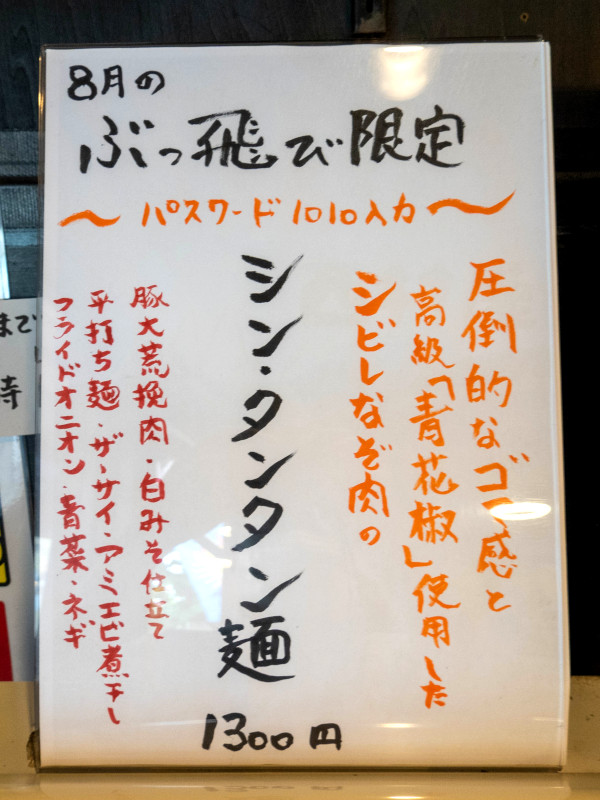 8月の
ぶっ飛び限定
〜パスワード1010入力〜
圧倒的なゴマ感と
高級「青花椒」使用した
シビレなぞ肉の
シン・タンタン麺
豚大荒挽肉・白みそ仕立て
平打ち麺・ザーサイ・アミエビ煮干し
フライドオニオン・青菜・ネギ
1300円
まで
時